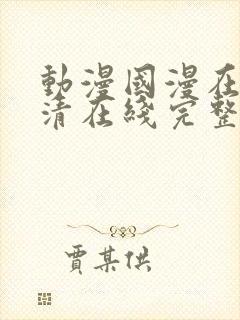 動漫國漫在
清在綫完整
賈某供